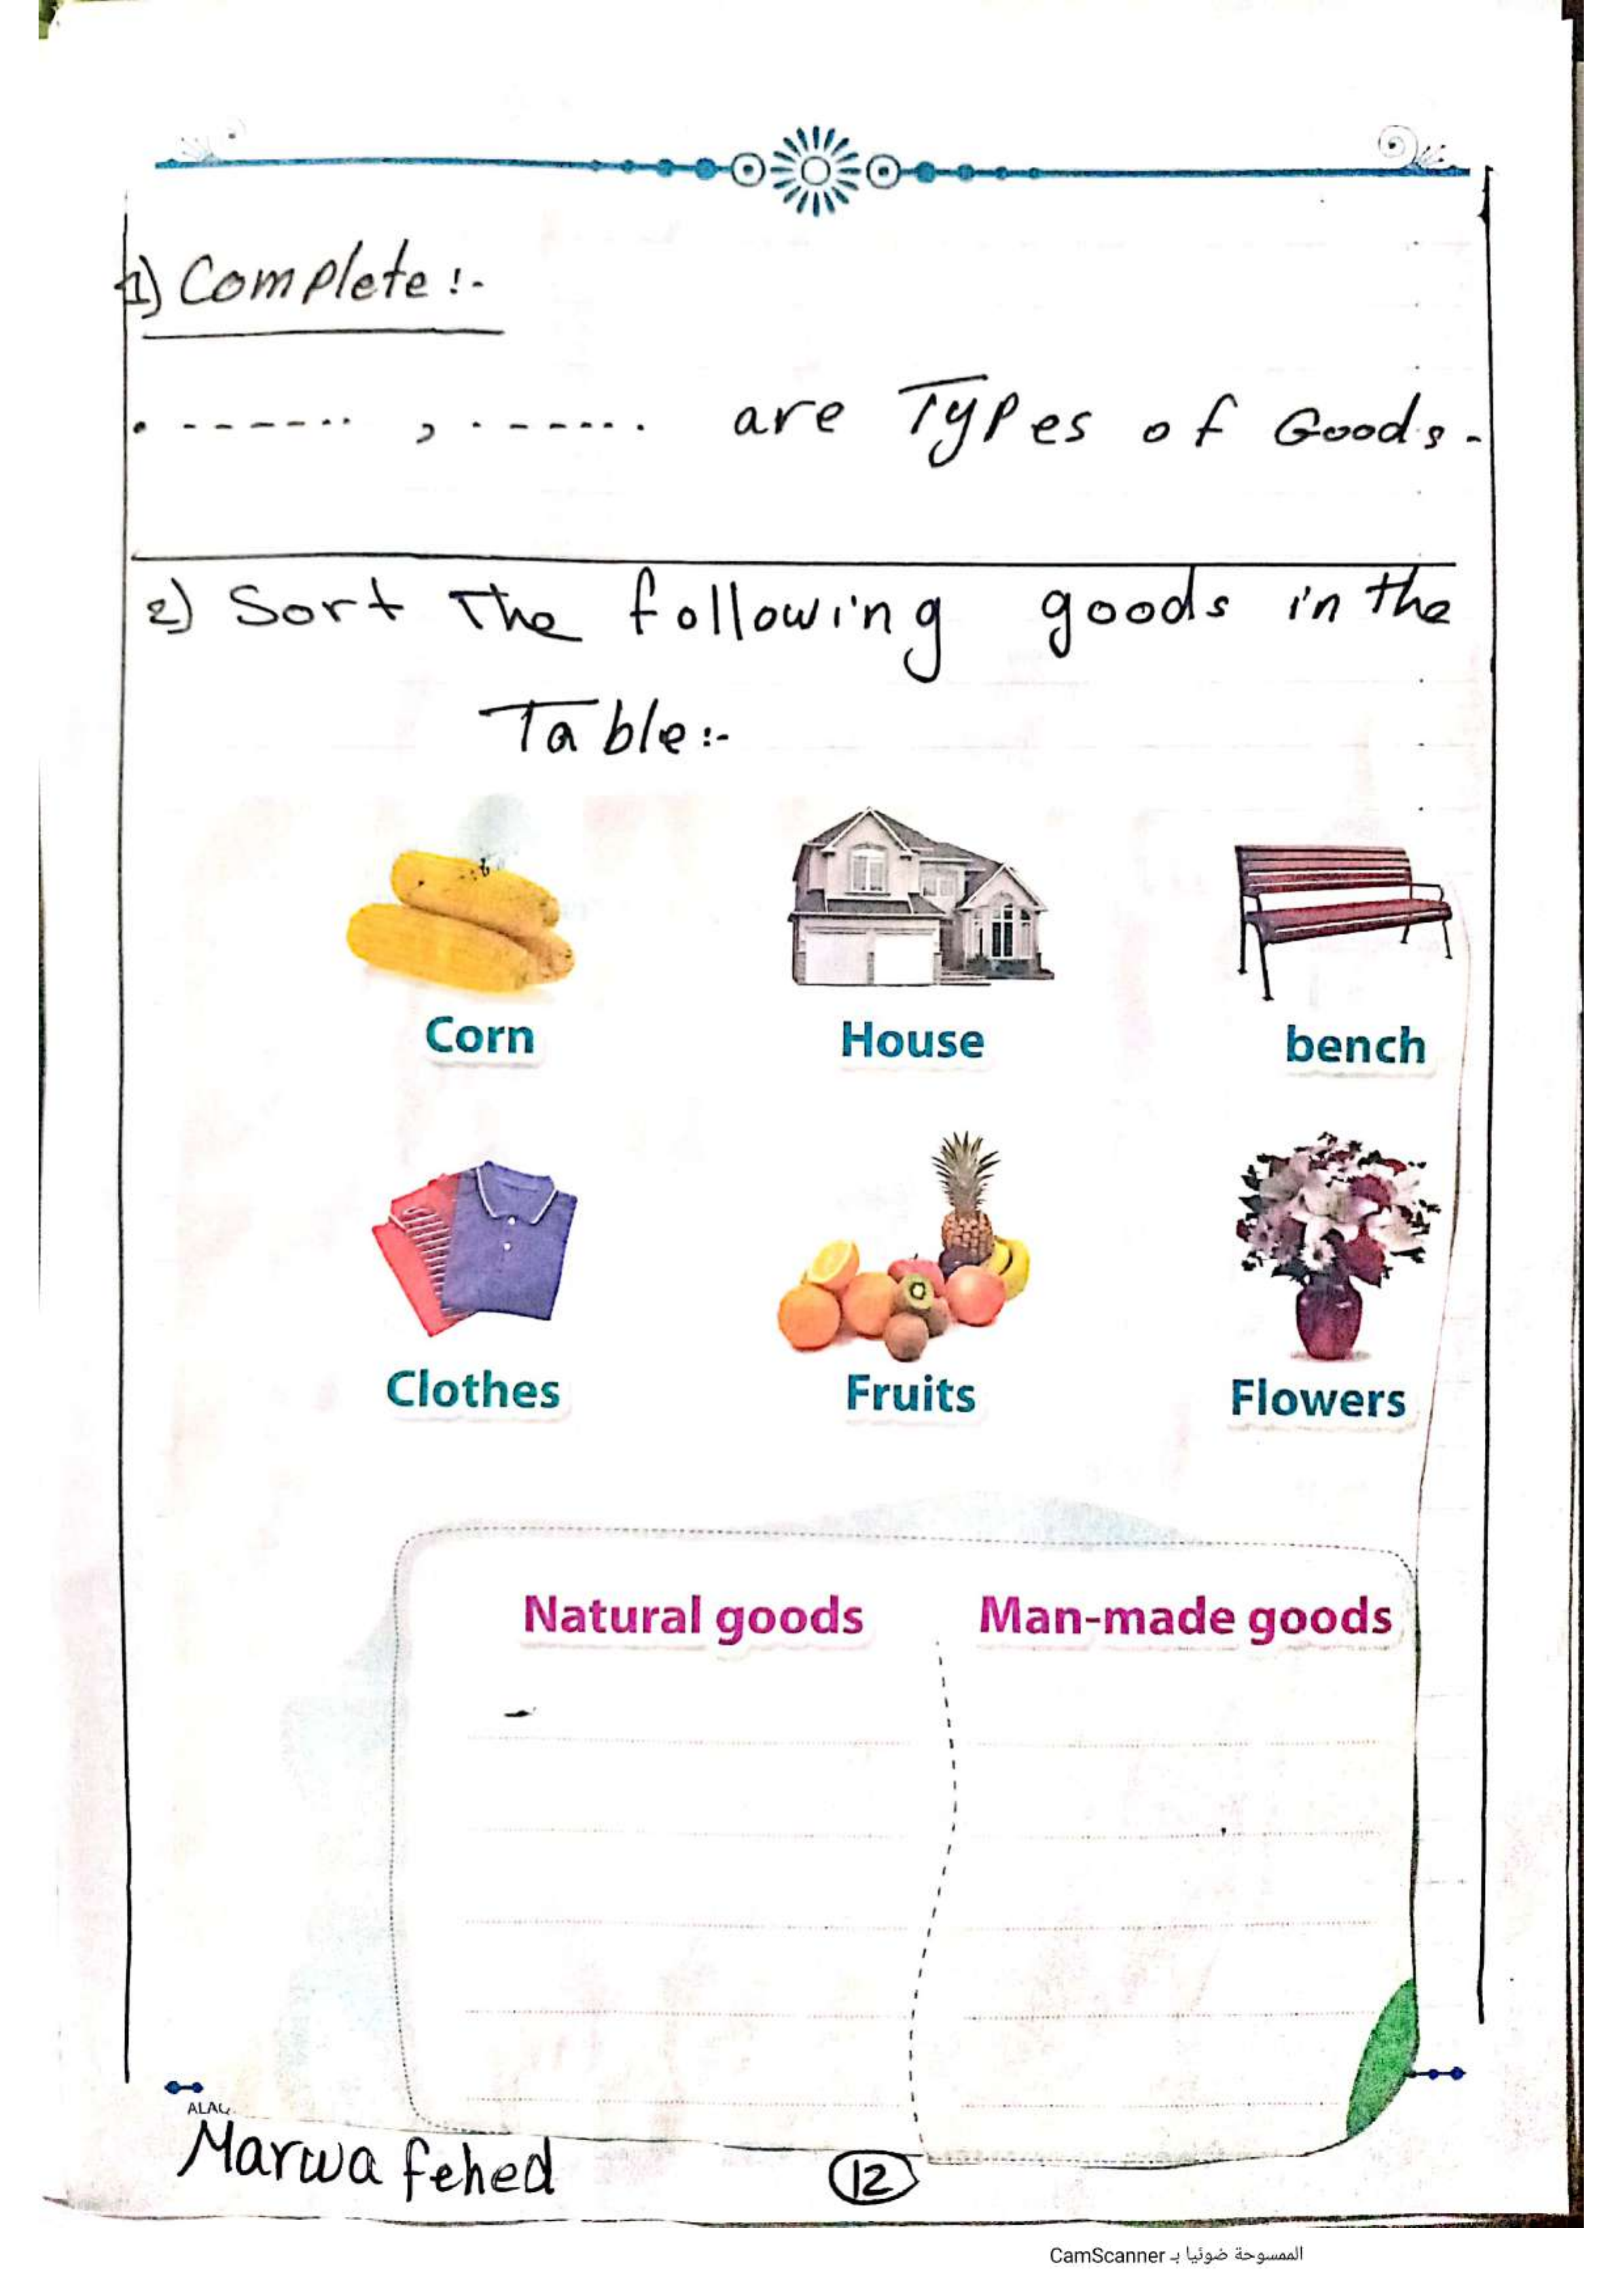 1) Complete :-
. ------- , . ------. are Types of Goods.
2) Sort The following goods in the
Table:-
Corn House bench
Clothes Fruits Flowers
Natural goods Man-made goods
-
Marwa fehed
12
الممسوحة ضوئيا بـ CamScanner